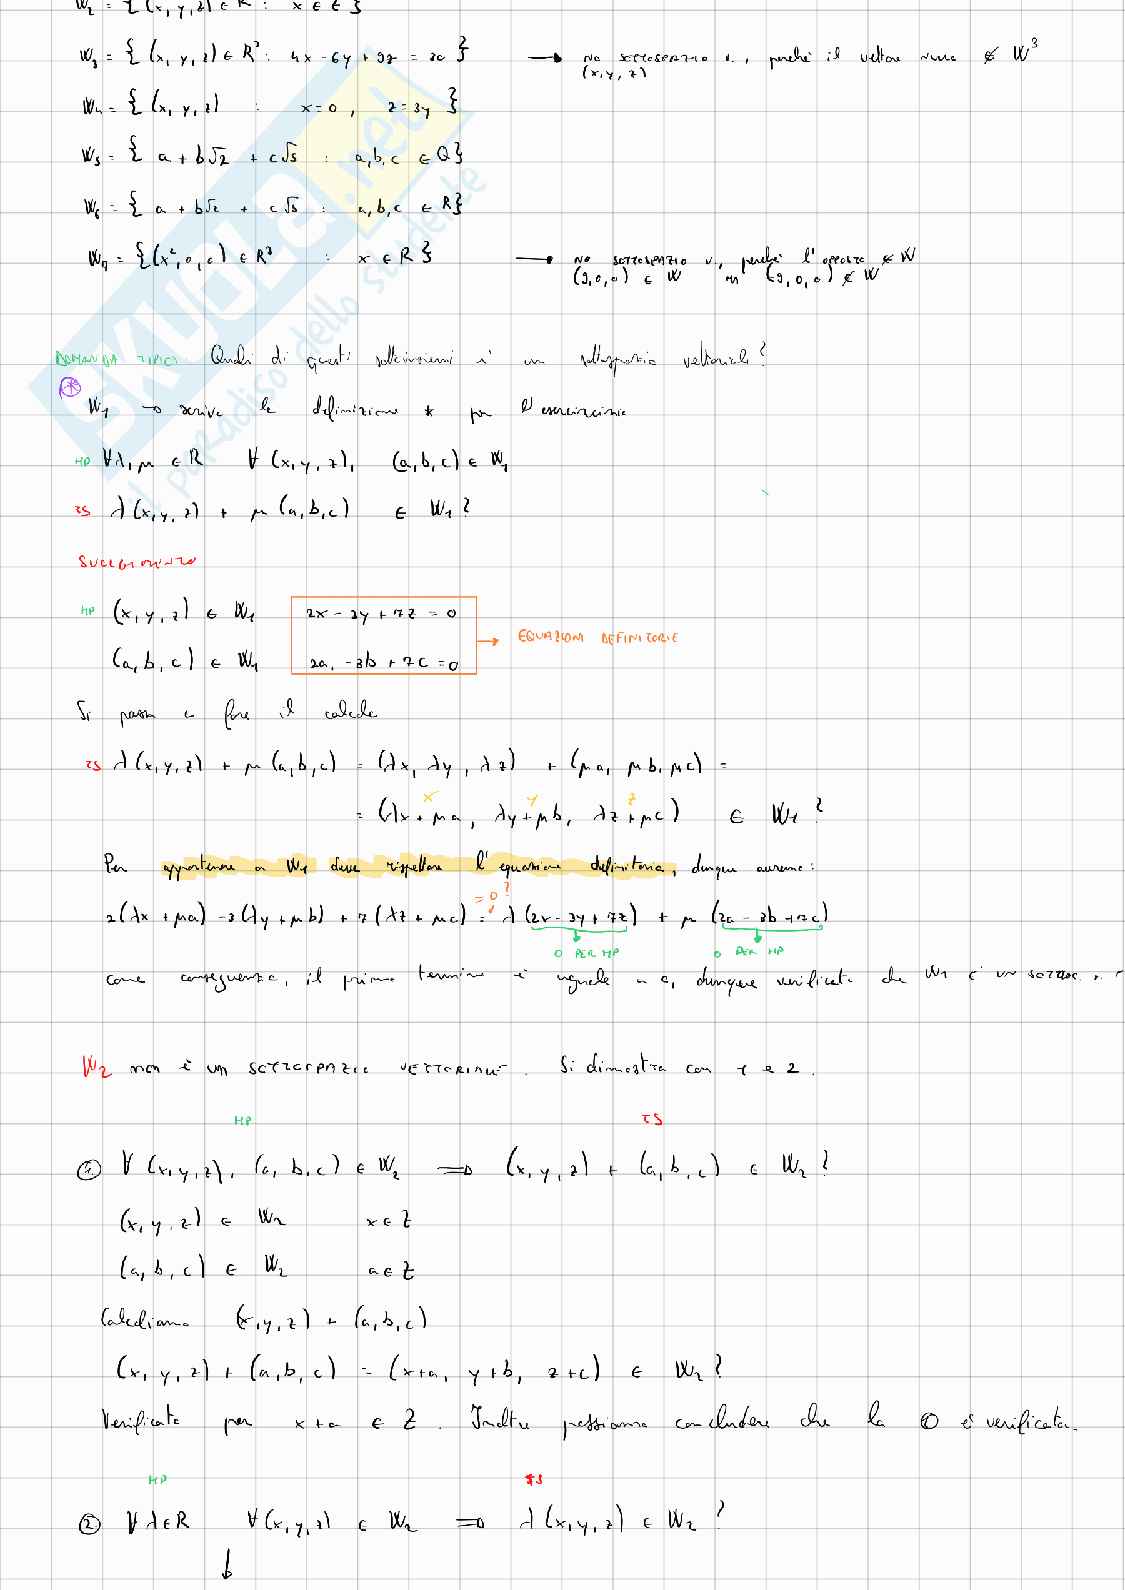 W₂ = { (x, y, z) ∈ R³ : x ∈ Z }
W₃ = { (x, y, z) ∈ R³ : 4x - 6y + 9z = 20 } → NO SOTTOSPAZIO V., perché il vettore nullo ∉ W³
(x, y, z)
W₄ = { (x, y, z) : x = 0 , z = 3y }
W₅ = { a + b√2 + c√5 : a, b, c ∈ Q }
W₆ = { a + b√2 + c√5 : a, b, c ∈ R }
W₇ = { (x², 0, 0) ∈ R³ : x ∈ R } → NO SOTTOSPAZIO V., perché l'opposto ∉ W
(9,0,0) ∈ W m (9,0,0) ∉ W
DOMANDA TIPICA: Quali di questi sottoinsiemi è un sottospazio vettoriale?
W₁ → scrivo la definizione * per l'esercizio
HP ∀ λ, μ ∈ R ∀ (x, y, z), (a, b, c) ∈ W₁
TS λ(x, y, z) + μ(a, b, c) ∈ W₁ ?
SVOLGIMENTO
HP (x, y, z) ∈ W₁ 2x - 3y + 7z = 0
→ EQUAZIONI DEFINITORIE
(a, b, c) ∈ W₁ 2a - 3b + 7c = 0
Si passa a fare il calcolo
TS λ(x, y, z) + μ(a, b, c) = (λx, λy, λz) + (μa, μb, μc) =
x y z
= (λx + μa, λy + μb, λz + μc) ∈ W₁ ?
Per appartenere a W₁ deve rispettare l'equazione definitoria, dunque avremo:
= 0 ?
2(λx + μa) - 3(λy + μb) + 7(λz + μc) = λ(2x - 3y + 7z) + μ(2a - 3b + 7c)
0 PER HP 0 PER HP
come conseguenza, il primo termine è uguale a 0, dunque verificato che W₁ è un SOTTOS. v.
W₂ non è un SOTTOSPAZIO VETTORIALE. Si dimostra con 1 e 2.
HP TS
① ∀ (x, y, z), (a, b, c) ∈ W₂ ⇒ (x, y, z) + (a, b, c) ∈ W₂ ?
(x, y, z) ∈ W₂ x ∈ Z
(a, b, c) ∈ W₂ a ∈ Z
Calcoliamo (x, y, z) + (a, b, c)
(x, y, z) + (a, b, c) = (x+a, y+b, z+c) ∈ W₂ ?
Verificato per x+a ∈ Z. Inoltre possiamo concludere che la ① è verificata.
HP TS
② ∀ λ ∈ R ∀ (x, y, z) ∈ W₂ ⇒ λ(x, y, z) ∈ W₂ ?
↓
SKUOLA.net
il paradiso dello studente